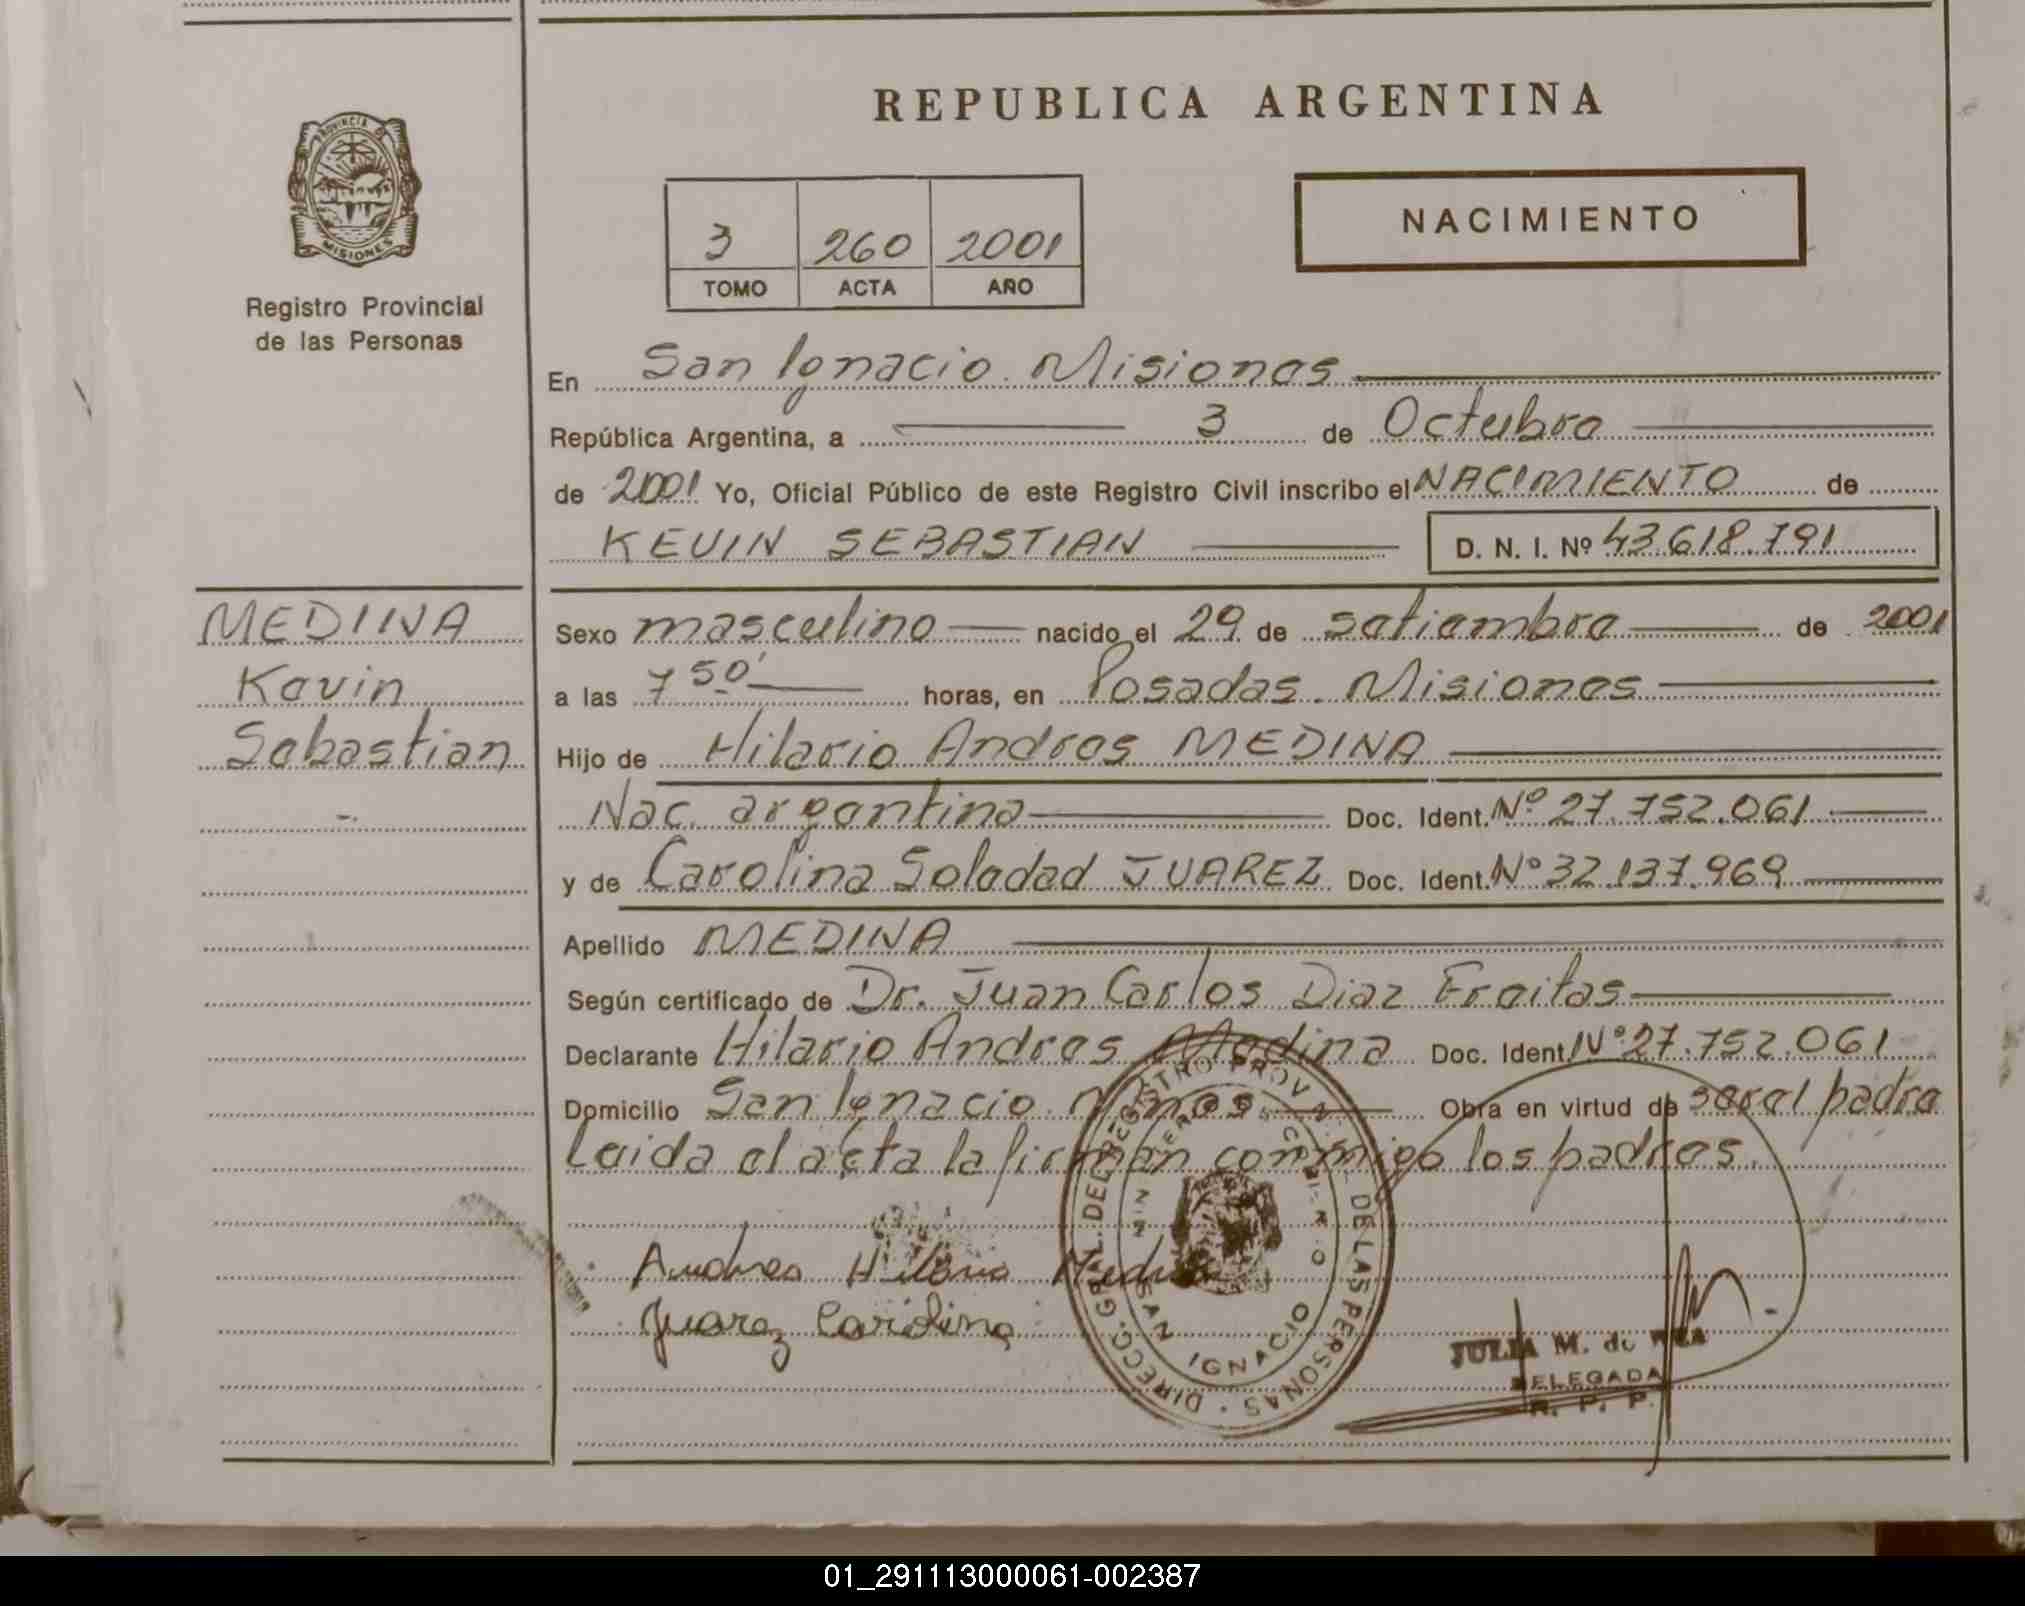 REPUBLICA ARGENTINA
PROVINCIA DE
MISIONES
Registro Provincial
de las Personas
3 260 2001
TOMO ACTA AÑO
NACIMIENTO
En San Ignacio. Misiones
República Argentina, a 3 de Octubre
de 2001 Yo, Oficial Público de este Registro Civil inscribo el NACIMIENTO de
KEVIN SEBASTIAN D. N. I. Nº 43.618.791
MEDINA
Kevin
Sebastian
Sexo masculino nacido el 29 de setiembre de 2001
a las 7 50' horas, en Posadas. Misiones
Hijo de Hilario Andres MEDINA
Nac. argentina Doc. Ident. Nº 27.752.061
y de Carolina Soledad JUAREZ Doc. Ident. Nº 32.137.969
Apellido MEDINA
Según certificado de Dr. Juan Carlos Diaz Freitas
Declarante Hilario Andres Medina Doc. Ident. Nº 27.752.061
Domicilio San Ignacio. Mnes Obra en virtud de ser el padre
Leida el acta la firman conmigo los padres.
Andres Hilario Medina
Juarez Carolina
DIRECC. GRAL. DEL REGISTRO PROV. DE LAS PERSONAS
SAN IGNACIO
JULIA M. de
DELEGADA
R. P. P.
01_291113000061-002387